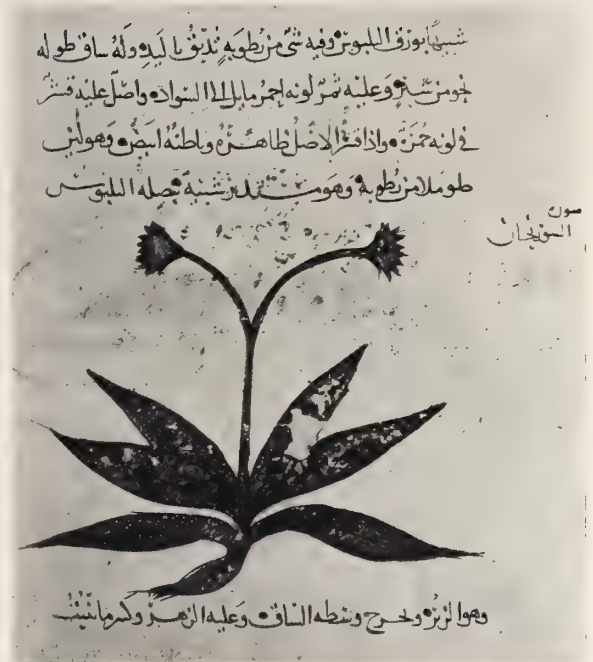 شبيها بورق البلبوس وفيه شئ من رطوبة تدبق باليد وله ساق طوله
نحو من شبر وعليه ثمر لونه احمر مايل الى السواد واصل عليه قشر
في لونه حمرة واذا قشر الاصل ظاهره وباطنه ابيض وهو لين
طو ملا من رطوبة وهو مستدير شبيه ببصلة البلبوس
صورة
السورنجان
وهو الزيز ويخرج وسطه الساق وعليه الزهر